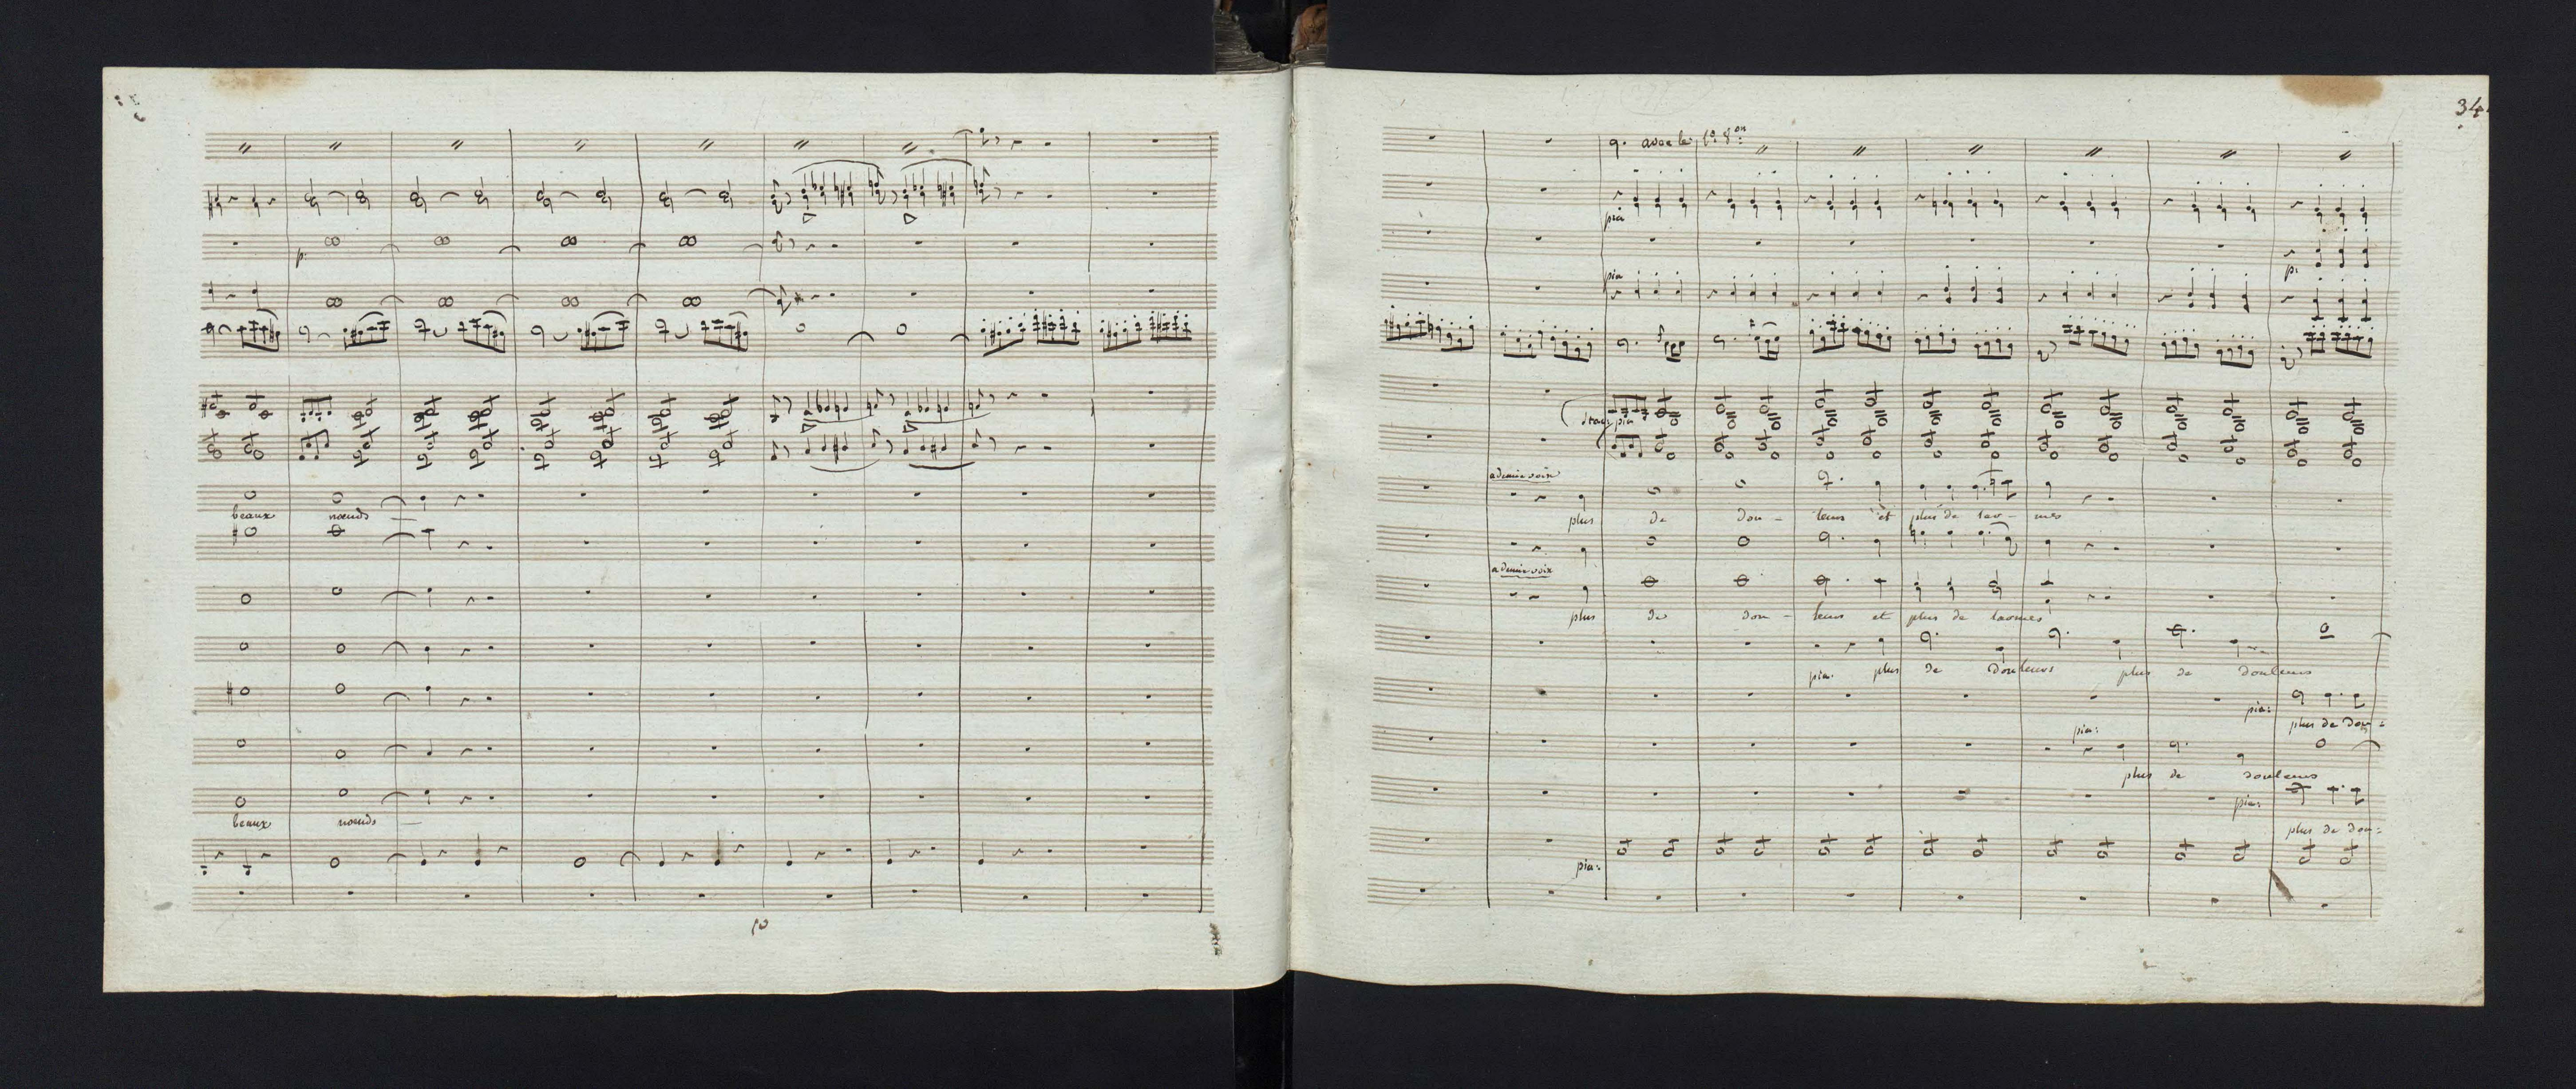 p.
beaux nœuds
beaux nœuds
34
avec le 1.º V.on
pia
pia
pia
a demie voix
plus de dou - leurs et plus de lar - mes
a demie voix
plus de dou - leurs et plus de larmes
pia. plus de douleurs plus de douleurs
pia: plus de dou =
pia:
plus de douleurs
pia: plus de dou =
pia:
p.